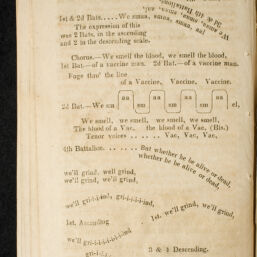 3d & 4th Battalions
1st & 2d Bats.....We smaa, smaa, smaa, sma!
The expression of this
was 2 Bats, in the ascending
and 2 in the descending scale.
Chorus.—We smell the blood, we smell the blood,
1st Bat.—of a vaccine man. 2d Bat.—of a vaccine man.
Fugo thro' the line
of a Vaccine, Vaccine, Vaccine.
aa aa aa
2d Bat.—We sm sm sm sm el,
We smell, we smell, we smell, we smell,
The blood of a Vac. the blood of a Vac, (Bis.)
Tenor voices ....... Vac, Vac, Vac,
4th Battalion. ...... But whether he be alive or dead,
whether he be alive or dead,
we'll grind, well grind,
we'll grind, we'll grind,
we'll gri-i-i-ind, gri-i-i-i-ind,
1st. Ascending
1st. we'll grind, we'll grind,
we'll gri-i-i-i-i-i-ind
3 & 4 Descending.
we'll gri-i-i